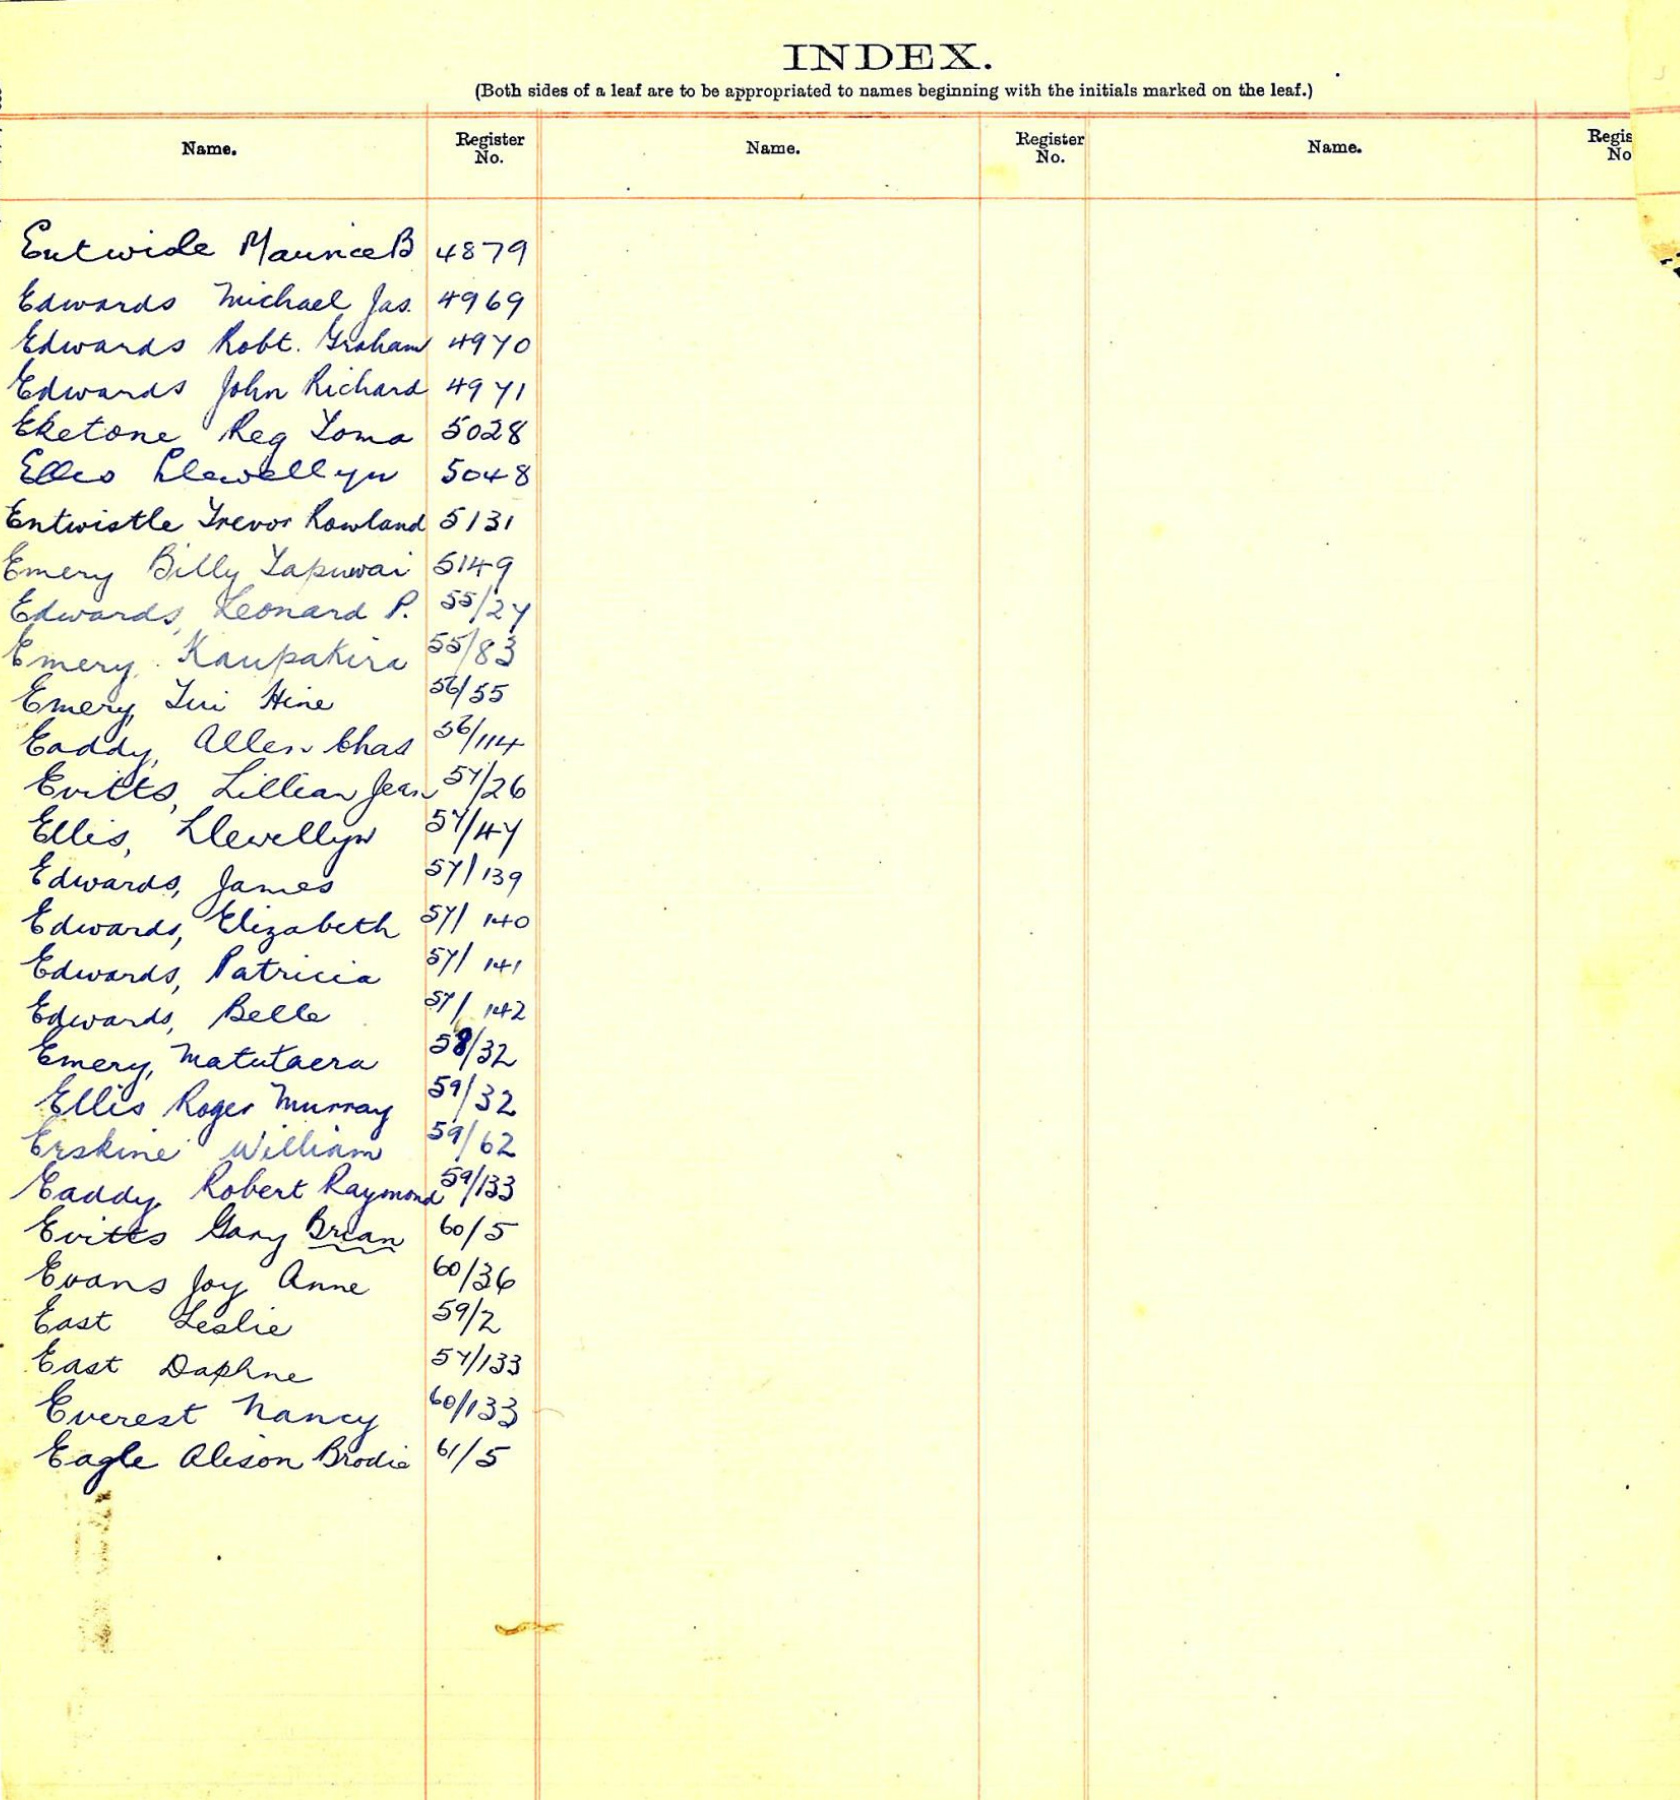 INDEX.
(Both sides of a leaf are to be appropriated to names beginning with the initials marked on the leaf.)
Name. Register No. Name. Register No. Name. Regis No
Entwisle Maurice B 4879
Edwards Michael Jas. 4969
Edwards Robt. Graham 4970
Edwards John Richard 4971
Eketone Reg Toma 5028
Ellis Llewellyn 5048
Entwistle Trevor Rowland 5131
Emery Billy Tapuwai 5149
Edwards, Leonard P. 55/27
Emery. Kaupakira 55/83
Emery, Tui Hine 56/55
Eaddy, Allen Chas 56/114
Evitts, Lillian Jean 57/26
Ellis, Llewellyn 57/47
Edwards, James 57/139
Edwards, Elizabeth 57/140
Edwards, Patricia 57/141
Edwards, Belle 57/142
Emery, Matutaera 58/32
Ellis Roger Murray 59/32
Erskine William 59/62
Eaddy Robert Raymond 59/133
Evitts Gary Brian 60/5
Evans Joy Anne 60/36
East Leslie 59/2
East Daphne 57/133
Everest Nancy 60/133
Eagle Alison Brodie 61/5